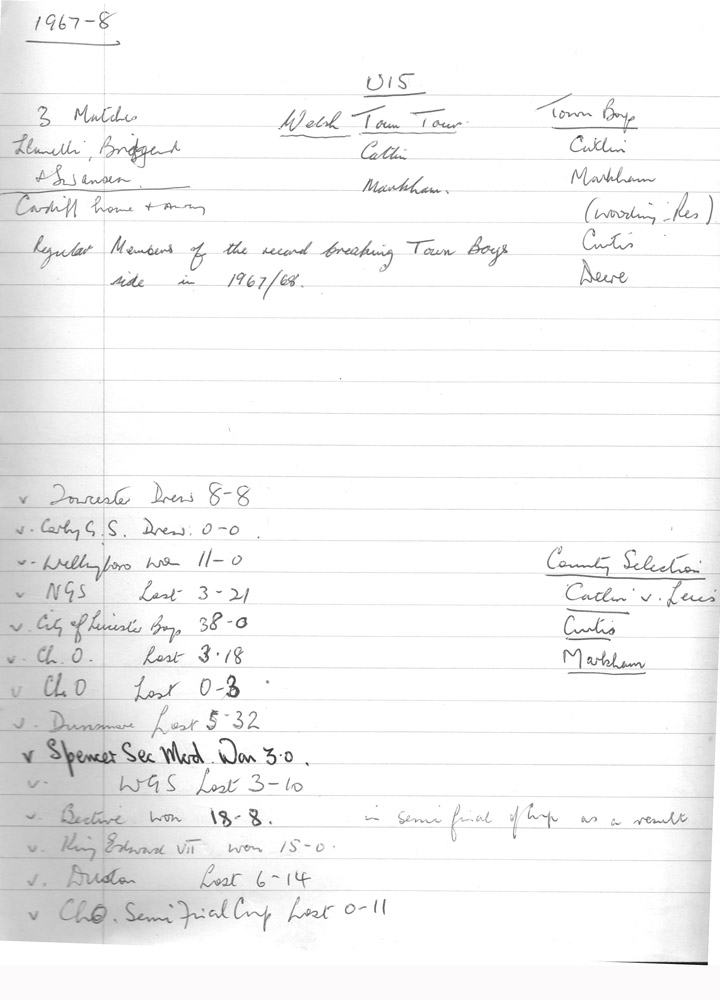 1967-8
U15
3 Matches
Llanelli, Bridgend
& Swansea.
Cardiff home & away
Welsh Town Tour.
Catlin
Markham.
Town Boys
Catlin
Markham
(Wooding - Res)
Curtis
Deere
Regular Members of the record breaking Town Boys
side in 1967/68.
v Towcester Drew 8-8
v. Corby G.S. Drew. 0-0.
v. Wellingboro won 11-0
v NGS Lost 3-21
v. City of Leicester Boys 38-0
v. Ch. O. Lost 3-18
v Ch O Lost 0-3
v. Dunsmore Lost 5-32
v Spencer Sec Mod. Won 3.0.
v. WGS Lost 3-10
v. Bective won 18-8. in semi final of Cup as a result
v. King Edward VII won 15-0.
v. Duston Lost 6-14
v ChO. Semi Final Cup Lost 0-11
County Selection
Catlin v. Leics
Curtis
Markham